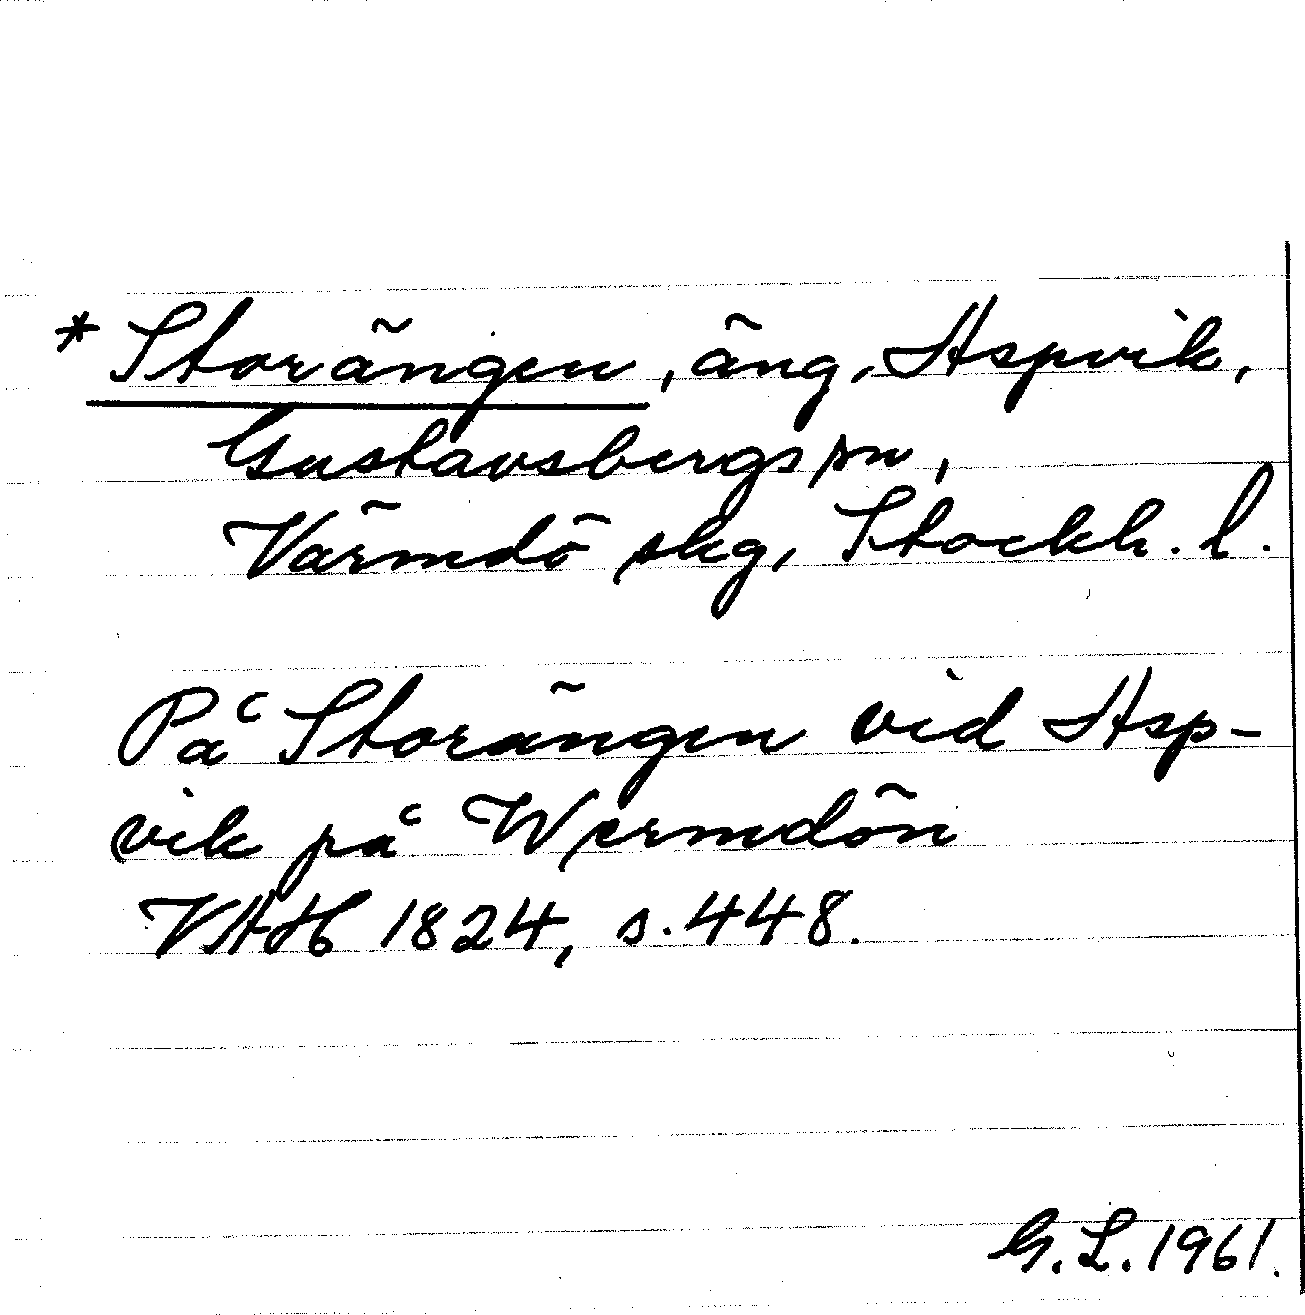 * Storängen, äng, Aspvik,
Gustavsbergs sn,
Värmdö skg, Stockh. l.
På Storängen vid Asp-
vik på Wermdön
VAH 1824, s. 448.
G. L. 1961.